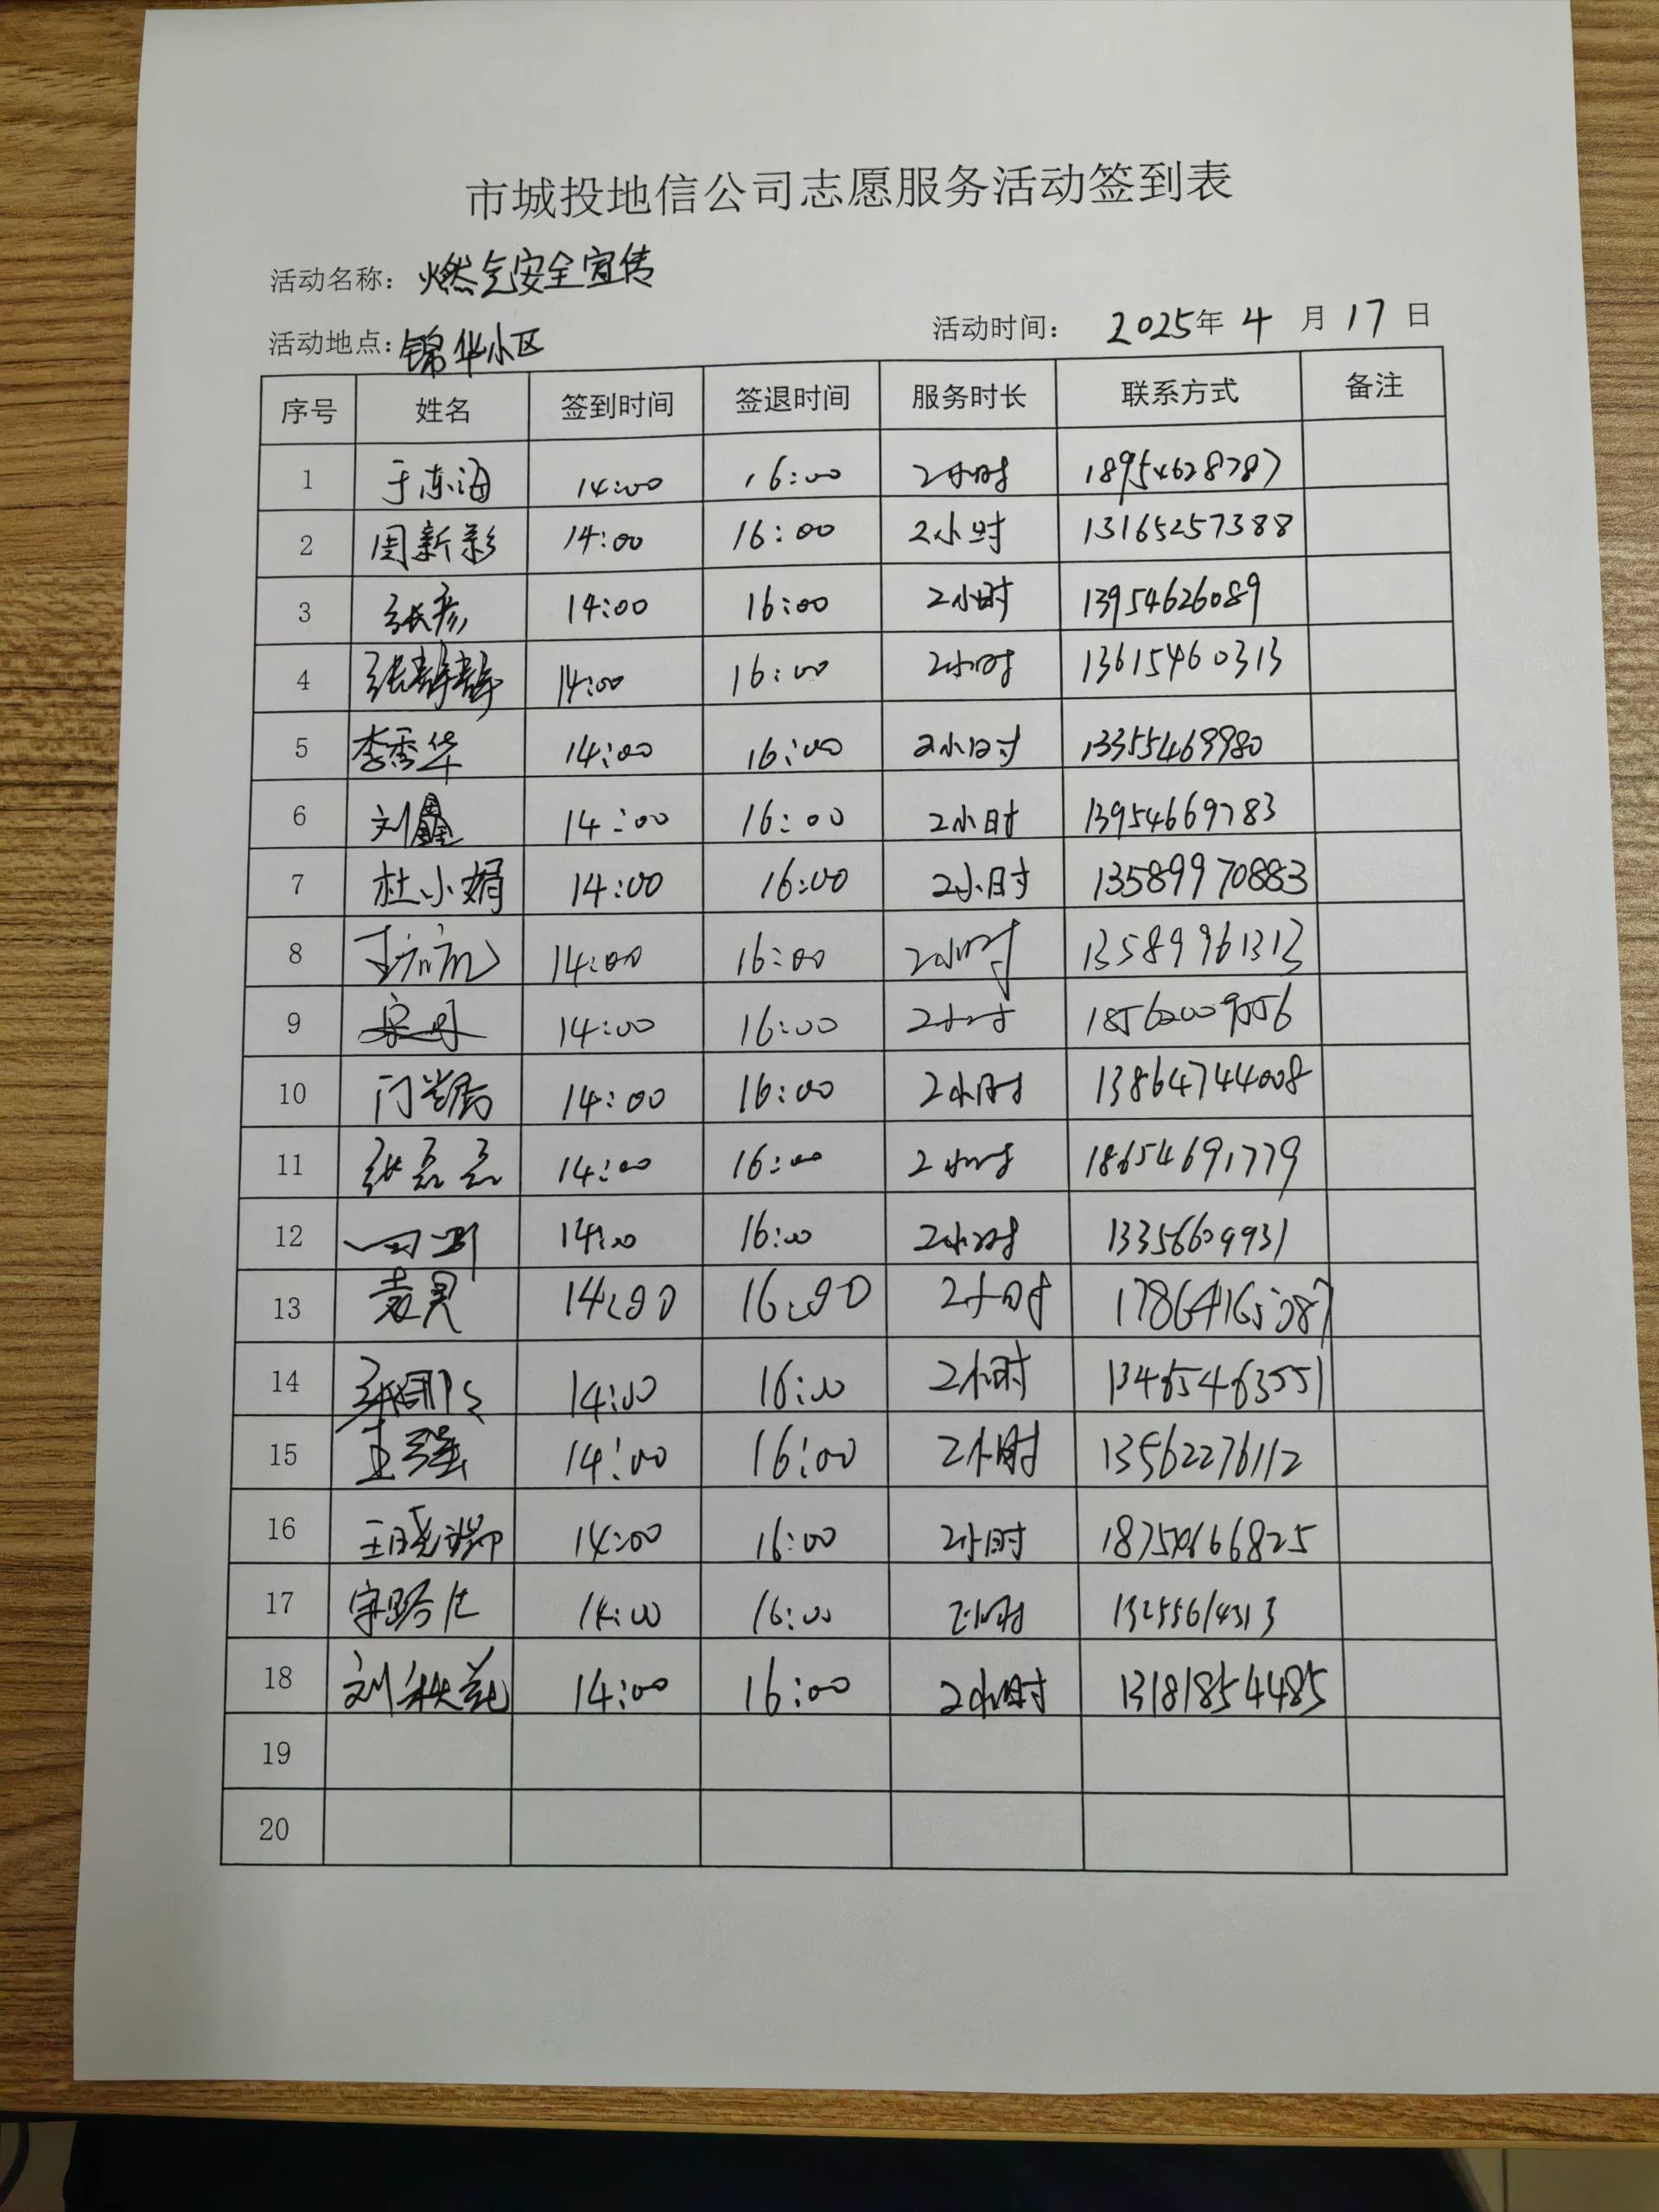 市城投地信公司志愿服务活动签到表
活动名称：燃气安全宣传
活动地点：锦华小区 活动时间： 2025年 4 月 17 日
序号 姓名 签到时间 签退时间 服务时长 联系方式 备注
1 于东海 14:00 16:00 2小时 18954628787
2 周新彩 14:00 16:00 2小时 13165257388
3 张彦 14:00 16:00 2小时 13954626089
4 张静静 14:00 16:00 2小时 13615460313
5 李秀华 14:00 16:00 2小时 13355469980
6 刘鑫 14:00 16:00 2小时 13954669783
7 杜小娟 14:00 16:00 2小时 13589970883
8 14:00 16:00 2小时 13589961313
9 14:00 16:00 2小时 18562009556
10 14:00 16:00 2小时 13864744008
11 张磊磊 14:00 16:00 2小时 18654691779
12 14:00 16:00 2小时 13356609931
13 14:00 16:00 2小时
14 14:00 16:00 2小时 13465463551
15 王强 14:00 16:00 2小时 13562276112
16 王晓娜 14:00 16:00 2小时
17 14:00 16:00 2小时 13255614313
18 刘秋苑 14:00 16:00 2小时 13181854485
19
20